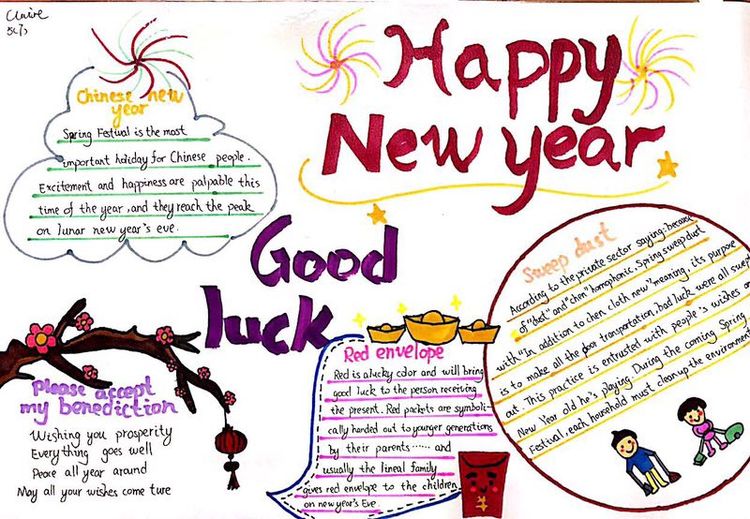 Claire
Happy
New year
Chinese new
year
Spring Festival is the most
important holiday for Chinese people.
Excitement and happiness are palpable this
time of the year, and they reach the peak
on lunar new year's eve.
Good
luck
Please accept
my benediction
Wishing you prosperity
Everything goes well
Peace all year around
May all your wishes come ture
Red envelope
Red is a lucky color and will bring
good luck to the person receiving
the present. Red packets are symboli-
cally handed out to younger generations
by their parents ...... and
usually the lineal family
gives red envelope to the children
on new year's Eve.
Sweep dust
According to the private sector saying: because
of "dust" and "chen" homophonic, Spring sweep dust
with "In addition to chen cloth new" meaning, its purpose
is to make all the poor transportation, bad luck were all swept
out. This practice is entrusted with people's wishes on
New Year old he's playing. During the coming Spring
Festival, each household must clean up the environment